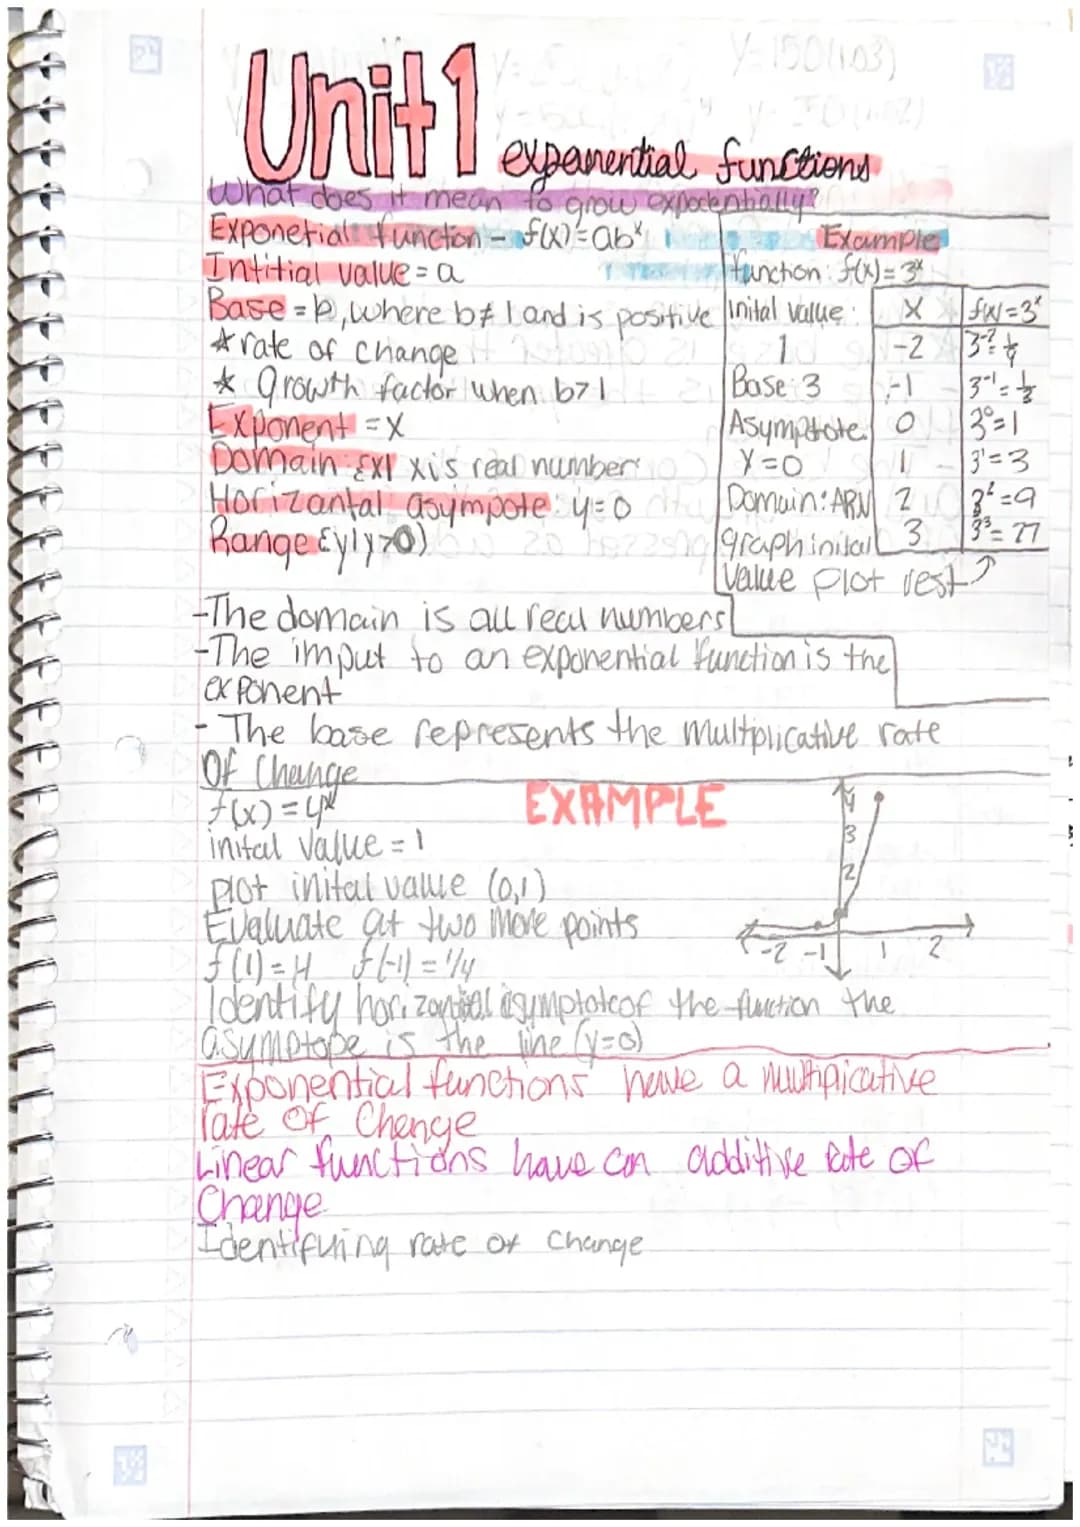 Unit 1
expanential functions
What does it mean to grow expodentially?
Exponetial function - f(x)=ab^x
Intitial value = a
Base = b, where b≠1 and is positive
* rate of change
* Growth factor when b>1
Exponent = x
Domain {x| x is real number
Horizantal asympote: y=0
Range {y|y>0)
Example
function: f(x)=3^x
Inital value:
1
Base: 3
Asymptote
Y=0
Domain: ARN
graph inital
value plot rest
X f(x)=3^x
-2 3^-2=1/9
-1 3^-1=1/3
0 3^0=1
1 3^1=3
2 3^2=9
3 3^3=27
-The domain is all real numbers
-The imput to an exponential function is the
exponent
- The base represents the multplicative rate
Of Change
EXAMPLE
f(x)=4^x
inital value = 1
plot inital value (0,1)
Evaluate at two more points
f(1)=4 f(-1)=1/4
4
3
2
-2 -1 1 2
Identify horizontal asymptote of the function the
asymptope is the line (y=0)
Exponential functions have a multipicative
rate of Change
Linear functions have an additive Rate of
Change
Identifying rate of change